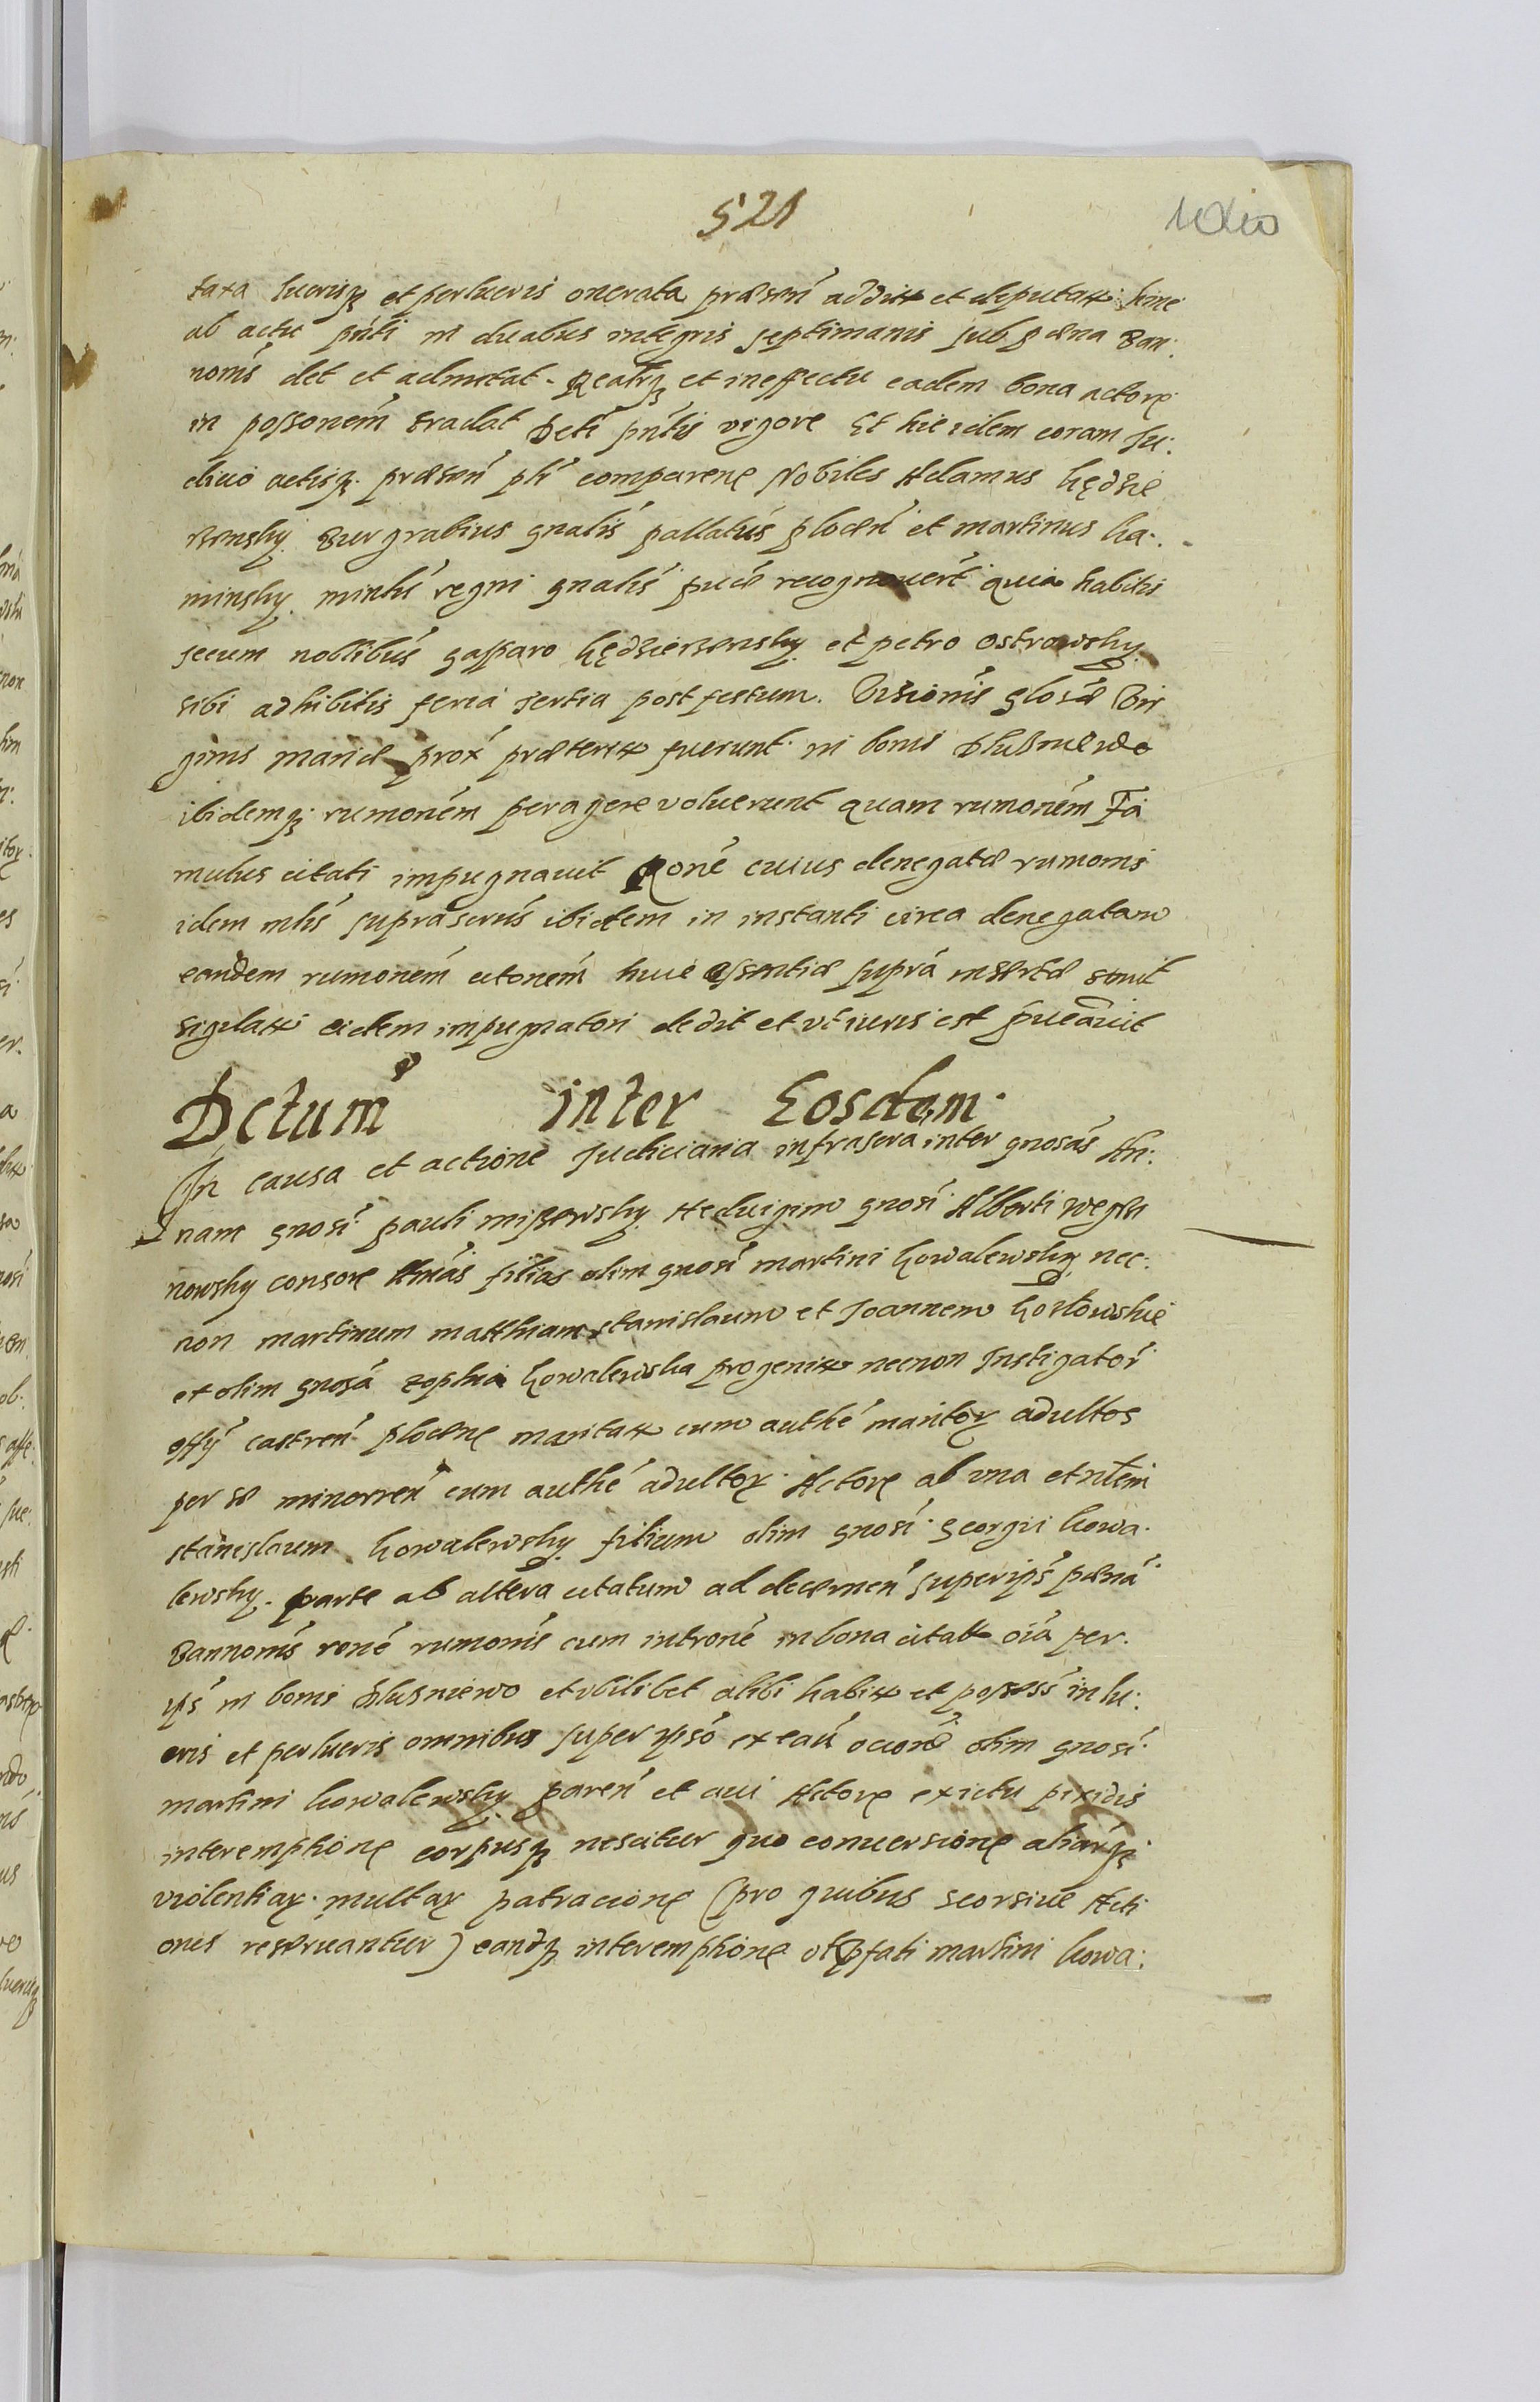 521
taxa lucrisq et perlucris onerata præsen addita et deputata hinc
ab actu pnti in duabus integris septimanis sub pæna ban:
nonis det et admittat. Realr et in effectu eadem bona actore
in possonem tradat Dcti pntis vigore Et hic idem coram Ju:
dicio actisq. præsen plr comparene Nobiles Adamus Kędzie
rzynsky Burgrabius gnalis pallatus plocen et martinus ka:
minsky minlis regni gnalis puce recognouert quia habitis
secum noblibus gasparo kędzierzynsky et petro ostrowsky
sibi adhibitis feria tertia post festum Visionis glosæ Vir
ginis mariæ prox præterita fuerunt in bonis
ibidemq rumonem peragere voluerunt quam rumonem Fa
mulus citati impugnauit Rone cuius denegatæ rumonis
idem mlis suprascrus ibidem in instanti circa denegatam
eandem rumonem citonem huic essentiæ supra insertæ
sigilata eidem impugnatori dedit et vt iuris est
Dctum inter Eosdem
In causa et actione Judiciaria infrascra inter gnosas An:
nam gnosi pauli miszewsky Heduigim gnosi Alberti węgrzi
nowsky consore filias olim gnosi martini kowalewsky nec:
non martinum matthiam stanislaum et Joannem
et olim gnosa zophia kowalewska progenita necnon Instigator
offy castren plocene maritata cum authe maritor adultos
per se minorren cum authe adultor Actore ab vna et nlem
stanislaum kowalewsky filium olim gnosi georgii kowa:
lewsky parte ab altera citatum ad decernen super ips pæna
Bannonis rone rumonis cum introne in bona citata oia per
ips in bonis et vbilibet alibi habita et possess in lu:
cris et perlucris omnibus super ipso ex cau occione olim gnosi
martini kowalewsky paren et aui Actore ex ictu pixidis
interemptione corpusq nescitur quo conuersione aliarq
violentiar multar patracione (pro quibus seorsiue Acti
ones reseruantur) eandq interemptione prfati martini kowa: